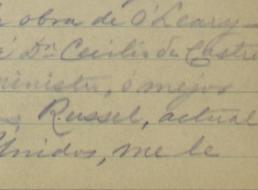 obra de O'Leary
Dn Cecilio de Castro
ministro, ó mejor
Russel, actual
Unidos, me le